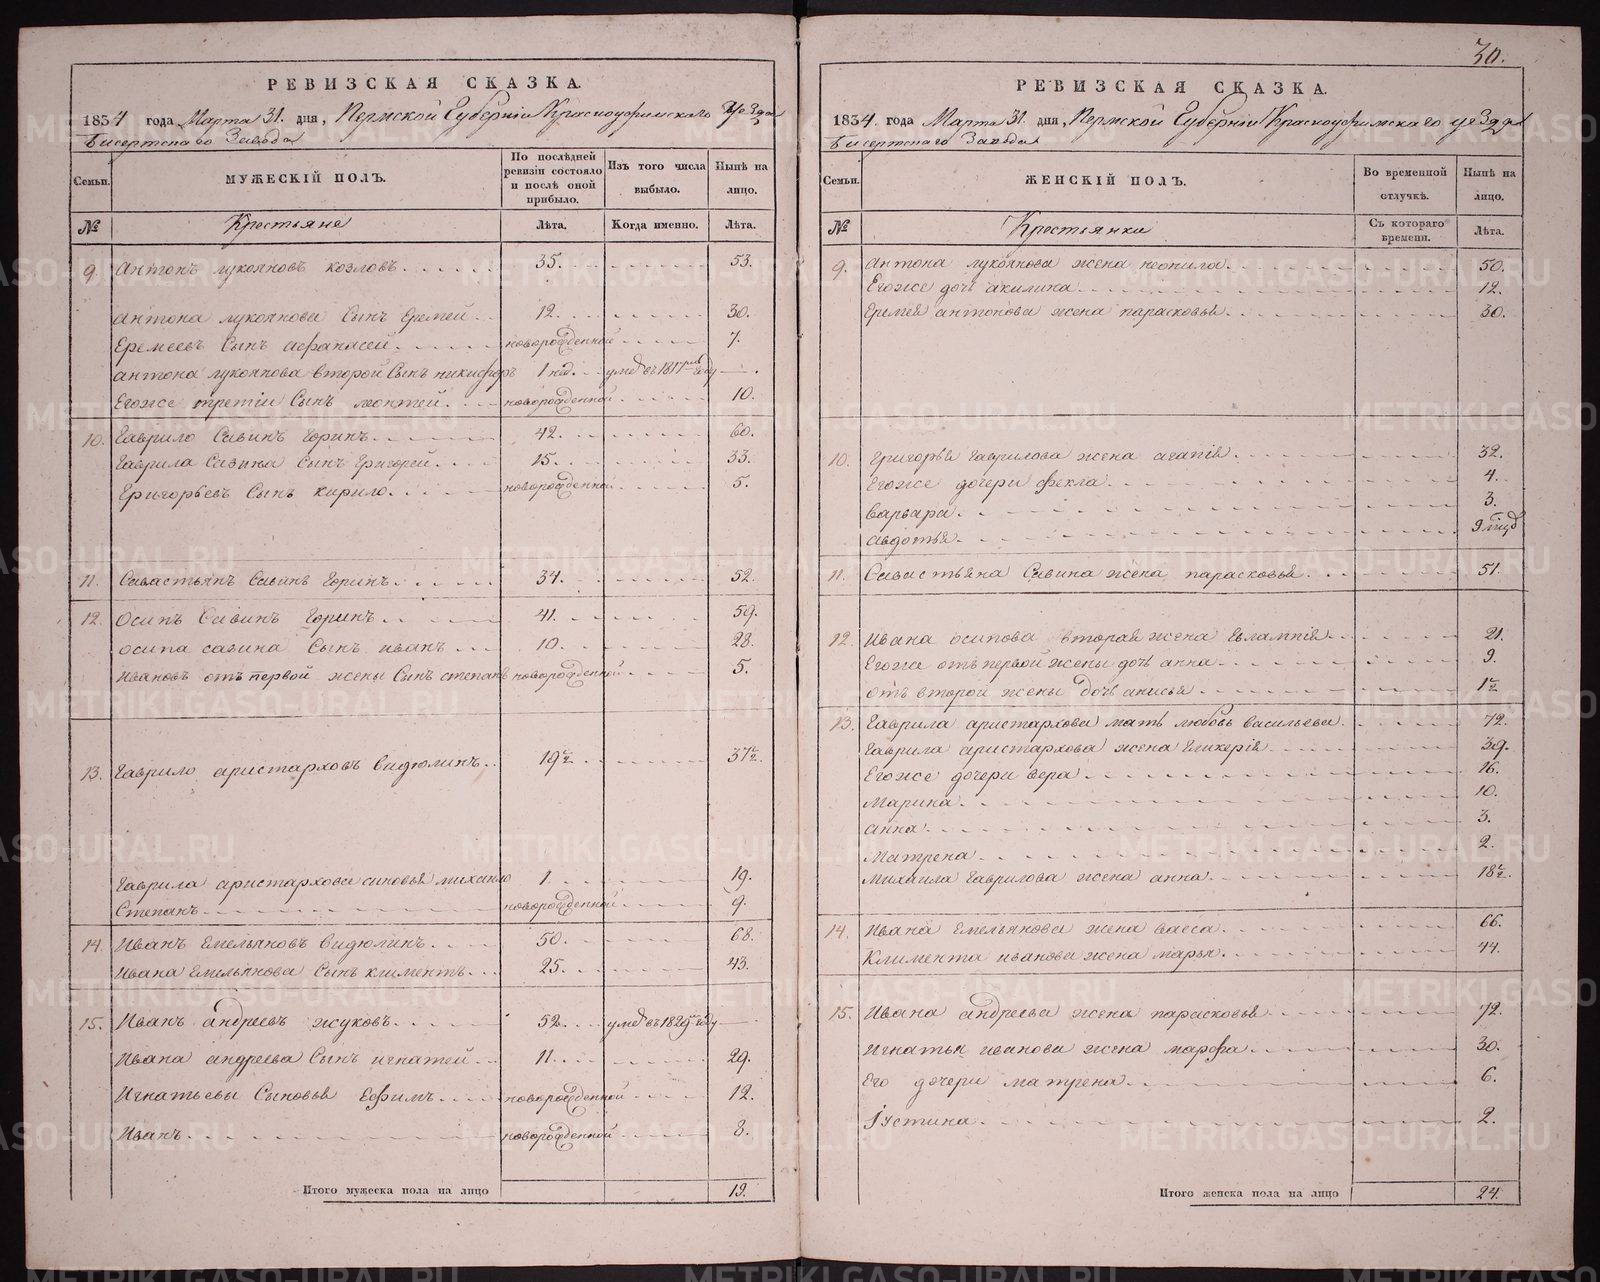 30.
РЕВИЗСКАЯ СКАЗКА.
1834 года Марта 31. дня, Пермской Губерніи Красноуфимскаго уезда
Бисертскаго Завода
Семьи. МУЖЕСКІЙ ПОЛЪ. По послѣдней ревизіи состояло и послѣ оной прибыло. Изъ того числа выбыло. Нынѣ на лицо.
№ Крестьяне Лѣта. Когда именно. Лѣта.
9. Антонъ лукояновъ козловъ 35. 53.
антона лукоянова Сынъ Еремей 12. 30.
Еремеевъ Сынъ афанасей новорожденной 7.
антона лукоянова второй Сынъ никифоръ 1 нед. умре въ 1817 году
Егоже третіи Сынъ леонтей новорожденной 10.
10. Гаврило Савинъ Горинъ 42. 60.
Гаврила Савина Сынъ Григорей 15. 33.
Григорьевъ Сынъ кирило новорожденной 5.
11. Савастьянъ Савинъ Горинъ 34. 52.
12. Осипъ Савинъ Горинъ 41. 59.
осипа савина Сынъ иванъ 10. 28.
Ивановъ отъ первой жены Сынъ степанъ новорожденной 5.
13. Гаврило аристарховъ видюлинъ 19½ 37½.
Гаврила аристархова сиповья михаило 1. 19.
Степанъ новорожденной 9.
14. Иванъ Емельяновъ видюлинъ 50. 68.
Ивана Емельянова Сынъ климентъ 25. 43.
15. Иванъ андреевъ жуковъ 52. умре въ 1829 году
Ивана андреева Сынъ игнатей 11. 29.
Игнатьевы Сыновья Ефимъ новорожденной 12.
Иванъ новорожденной 8.
Итого мужеска пола на лицо 19.
РЕВИЗСКАЯ СКАЗКА.
1834. года Марта 31. дня, Пермской Губерніи Красноуфимскаго уезда
Бисертскаго Завода
Семьи. ЖЕНСКІЙ ПОЛЪ. Во временной отлучкѣ. Нынѣ на лицо.
№ Крестьянки Съ котораго времени. Лѣта.
9. Антона лукоянова жена неонила 50.
Егоже дочь акилина 12.
Еремея антонова жена парасковья 30.
10. Григорья гаврилова жена агапія 32.
Егоже дочери фекла 4.
варвара 3.
авдотья 9
11. Савастьяна Савина жена парасковья 51.
12. Ивана осипова вторая жена Евлампія 21.
Егоже отъ первой жены дочь анна 9.
отъ второй жены дочь анисья 1½
13. Гаврила аристархова мать любовь васильева 72.
Гаврила аристархова жена Гликерія 39.
Егоже дочери вера 16.
Марина 10.
анна 3.
Матрена 2.
Михаила Гаврилова жена анна 18½.
14. Ивана Емельянова жена васса 66.
Климента иванова жена марья 44.
15. Ивана андреева жена парасковья 72.
Игнатья иванова жена марфа 30.
Его дочери матрена 6.
Іустина 2.
Итого женска пола на лицо 24.
METRIKI.GASO-URAL.RU